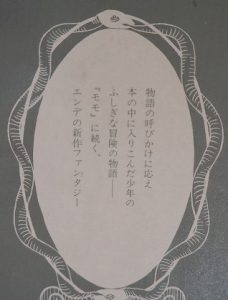 物語の呼びかけに応え
本の中に入りこんだ少年の
ふしぎな冒険の物語――
『モモ』に続く、
エンデの新作ファンタジー